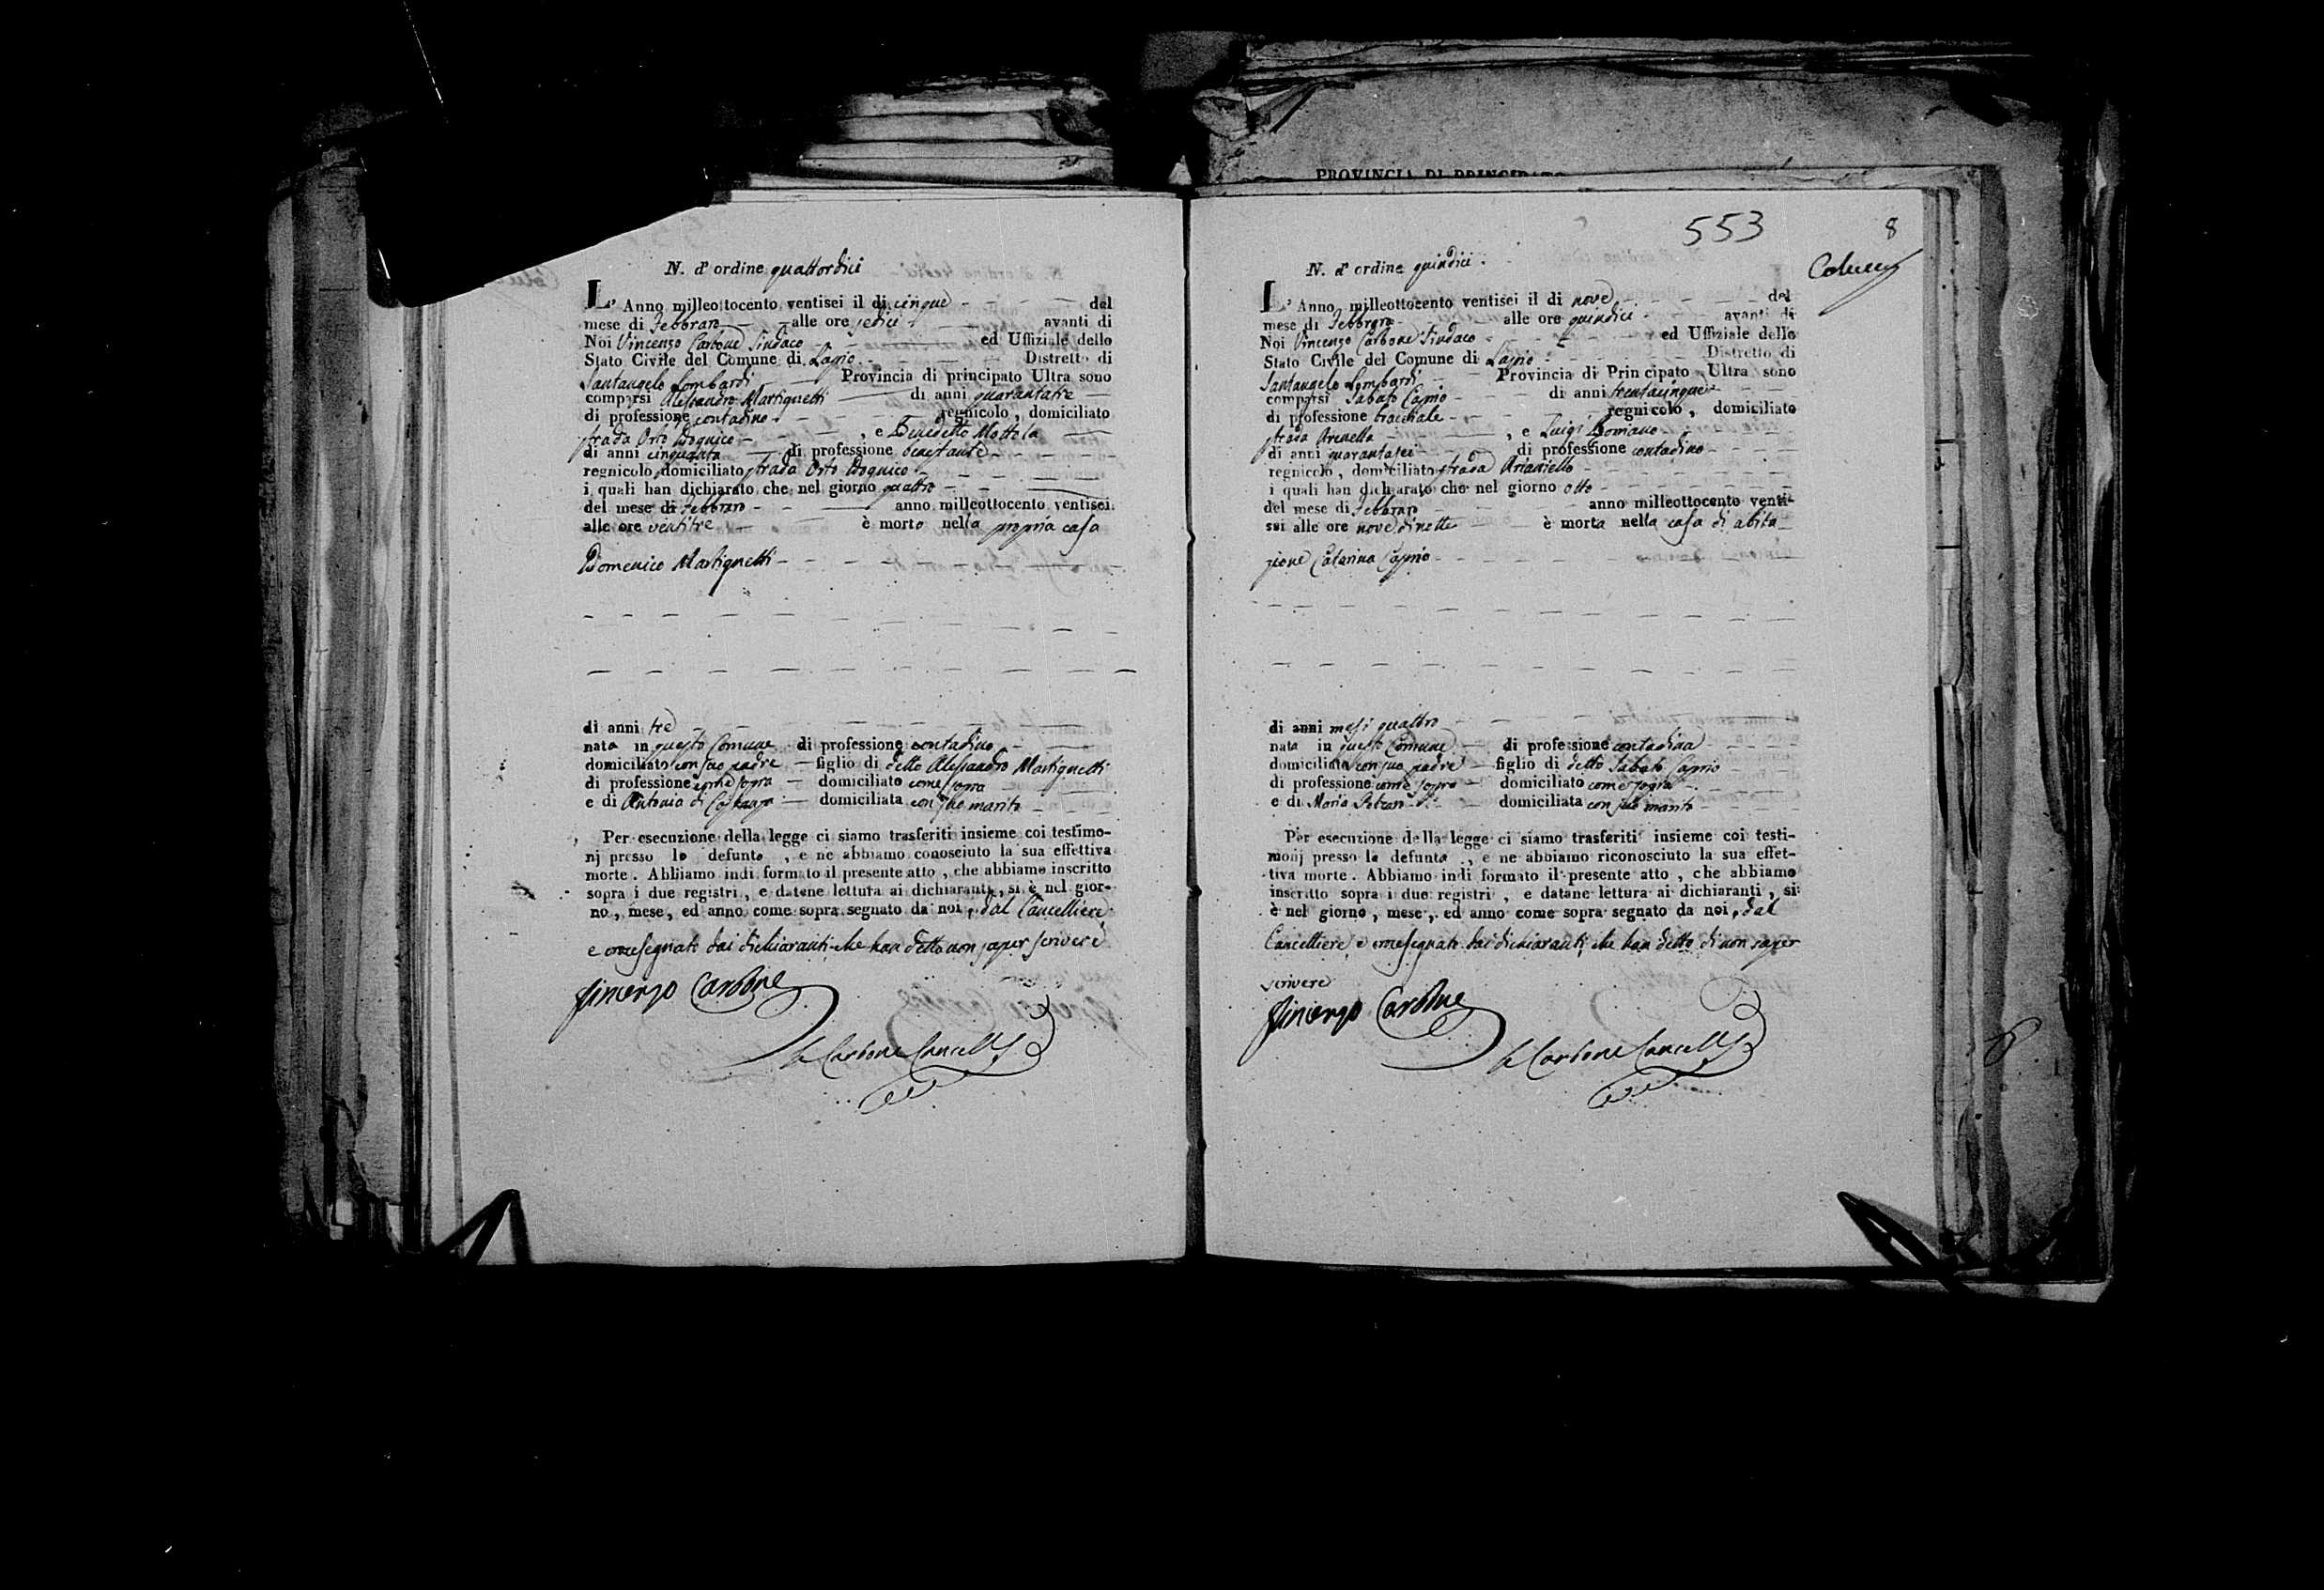 N. d'ordine quattordici
L' Anno milleottocento ventisei il dì cinque del
mese di Febbraro alle ore sedici avanti di
Noi Vincenzo Carbone Sindaco ed Uffiziale dello
Stato Civile del Comune di Lapio Distretto di
Santangelo Lombardi Provincia di principato Ultra sono
comparsi Alessandro Martignetti di anni quarantatre
di professione contadino regnicolo, domiciliato
strada Orto , e Benedetto Mottola
di anni cinquanta di professione benestante
regnicolo domiciliato strada Orto
i quali han dichiarato che nel giorno quattro
del mese di Febbraro anno milleottocento ventisei
alle ore ventitre è morto nella propria casa
Domenico Martignetti
di anni tre
nata in questo Comune di professione contadino
domiciliato con suo padre figlio di detto Alessandro Martignetti
di professione come sopra domiciliato come sopra
e di Antonia di domiciliata con suo marito
Per esecuzione della legge ci siamo trasferiti insieme coi testimo-
nj presso lo defunto , e ne abbiamo conosciuto la sua effettiva
morte. Abbiamo indi formato il presente atto, che abbiamo inscritto
sopra i due registri, e datane lettura ai dichiaranti, si è nel gior-
no, mese, ed anno come sopra segnato da noi, dal Cancelliere
e crocesegnato dai dichiaranti che han detto non saper scrivere
Vincenzo Carbone
Carbone Cancell
PROVINCIA DI PRINCIPATO
553
8
Colucci
N. d'ordine quindici
L' Anno milleottocento ventisei il di nove del
mese di Febbraro alle ore quindici avanti di
Noi Vincenzo Carbone Sindaco ed Uffiziale dello
Stato Civile del Comune di Lapio Distretto di
Santangelo Lombardi Provincia di Principato Ultra sono
comparsi Sabato Caprio di anni trentacinque
di professione bracciale regnicolo, domiciliato
strada Arenella , e Luigi Romano
di anni quarantasei di professione contadino
regnicolo, domiciliato strada Arianiello
i quali han dichiarato che nel giorno otto
del mese di Febbraro anno milleottocento venti-
sei alle ore nove di notte è morta nella casa di abita
zione Catarina Caprio
di anni mesi quattro
nata in questo Comune di professione contadina
domiciliata con suo padre figlio di detto Sabato Caprio
di professione come sopra domiciliato come sopra
e di Maria domiciliata con suo marito
Per esecuzione della legge ci siamo trasferiti insieme coi testi-
monj presso la defunta , e ne abbiamo riconosciuto la sua effet-
tiva morte. Abbiamo indi formato il presente atto, che abbiamo
inscritto sopra i due registri, e datane lettura ai dichiaranti, si
è nel giorno, mese, ed anno come sopra segnato da noi, dal
Cancelliere e crocesegnato dai dichiaranti che han detto di non saper
scrivere
Vincenzo Carbone
Carbone Cancell